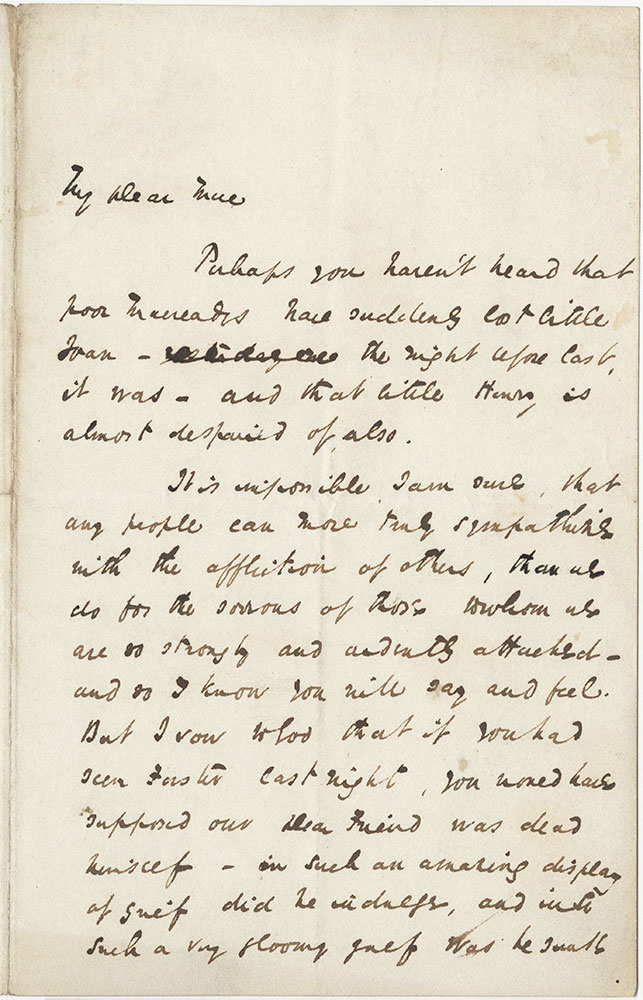 My dear Mac
Perhaps you haven't heard that
poor Macreadys have suddenly lost little
Joan - the night before last,
it was - and that little Henry is
almost despaired of, also.
It is impossible I am sure, that
any people can more truly sympathize
with the affliction of others, than we
do for the sorrows of those to whom we
are so strongly and ardently attached -
and so I know you will say and feel.
But I vow to God that if you had
seen Forster last night, you would have
supposed our Dear Friend was dead
himself - in such an amazing display
of grief did he indulge, and into
such a very gloomy gulf was he sunk